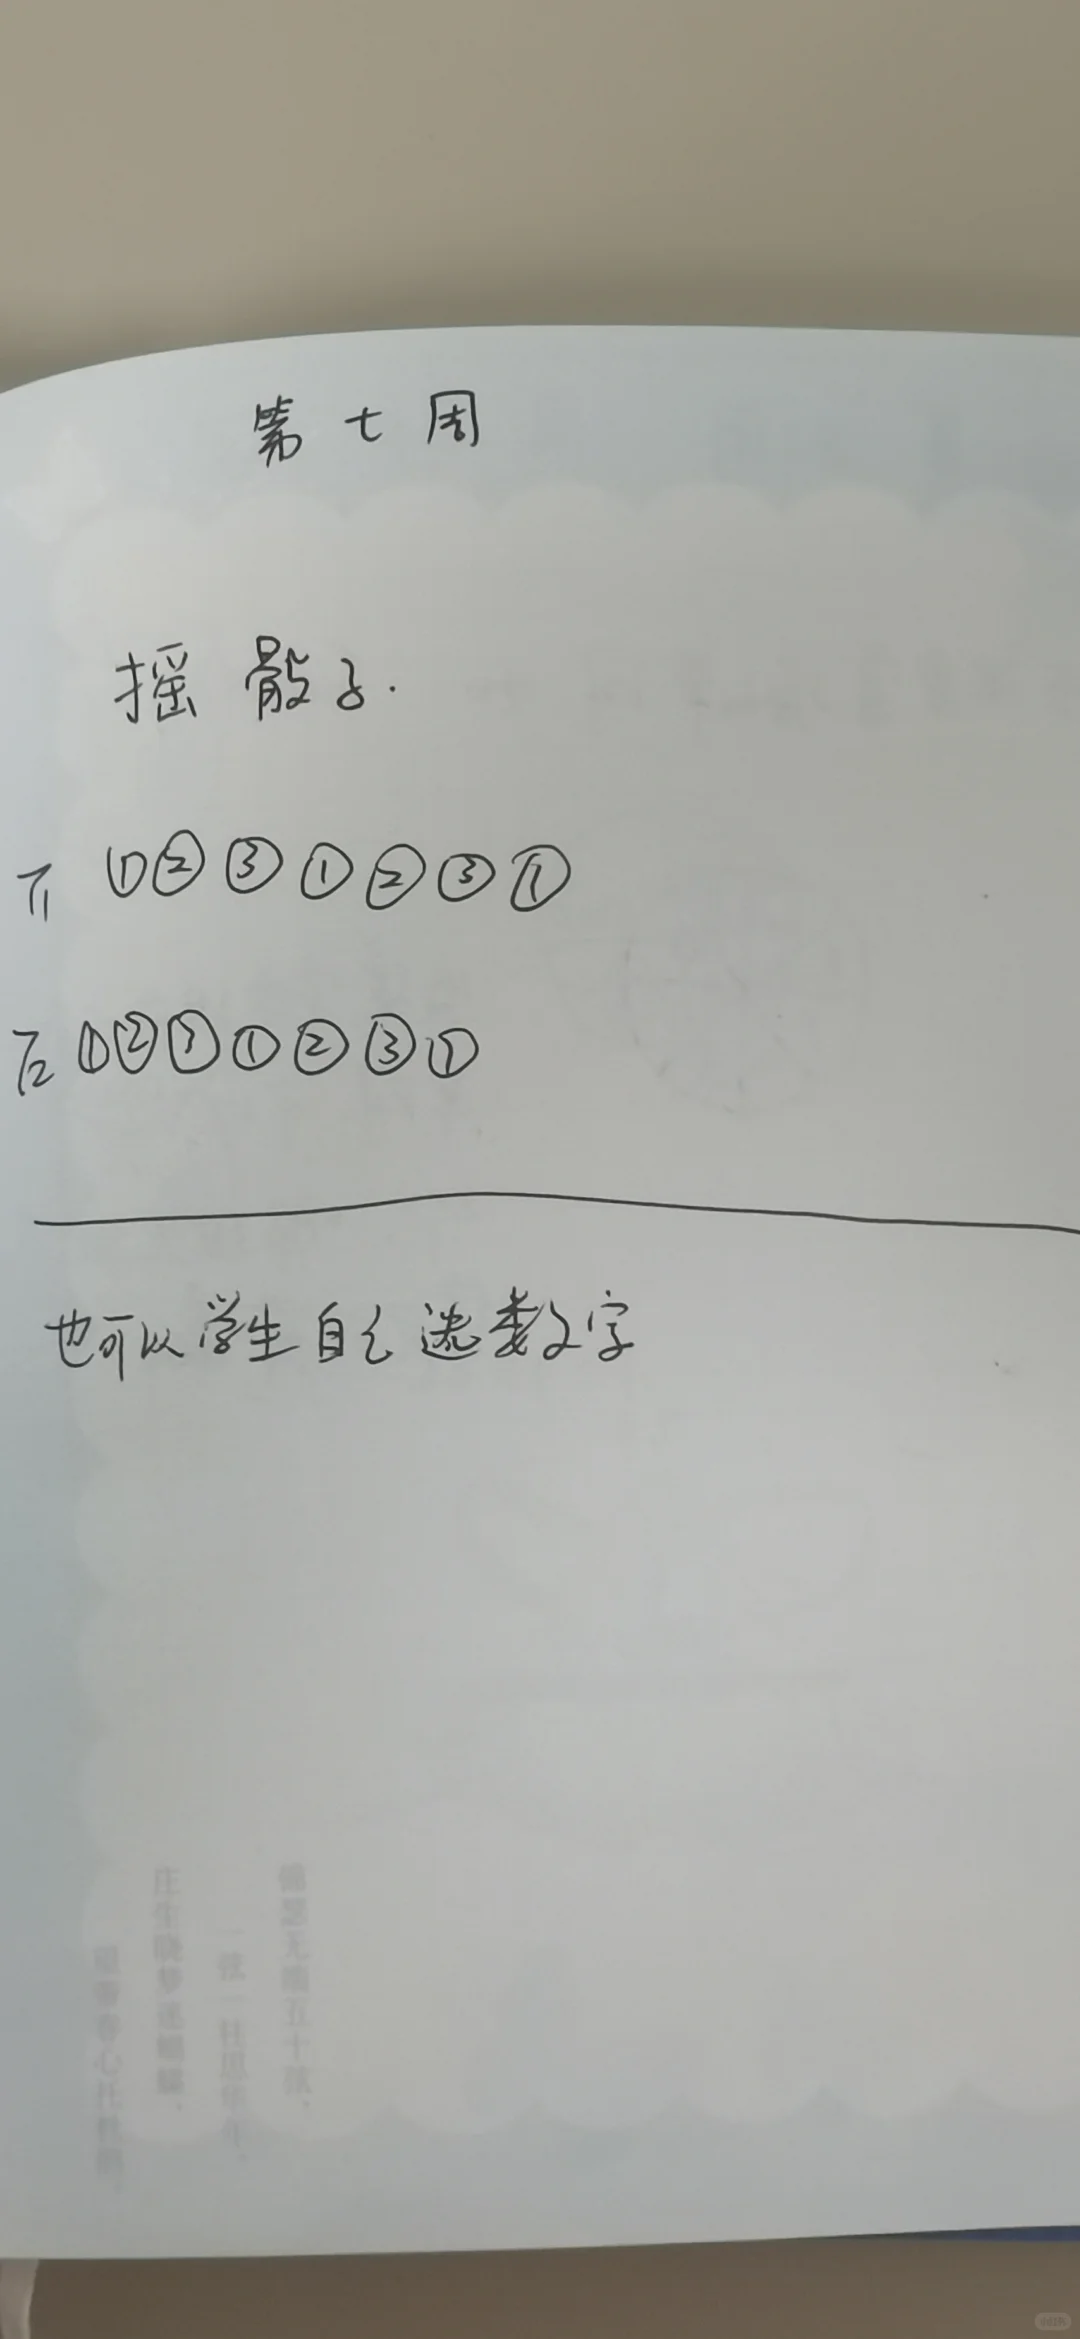 第七周
摇骰子.
T1 ①②③①②③①
T2 ①②③①②③①
也可以学生自己选数字
锦瑟无端五十弦，
一弦一柱思华年。
庄生晓梦迷蝴蝶，
望帝春心托杜鹃。